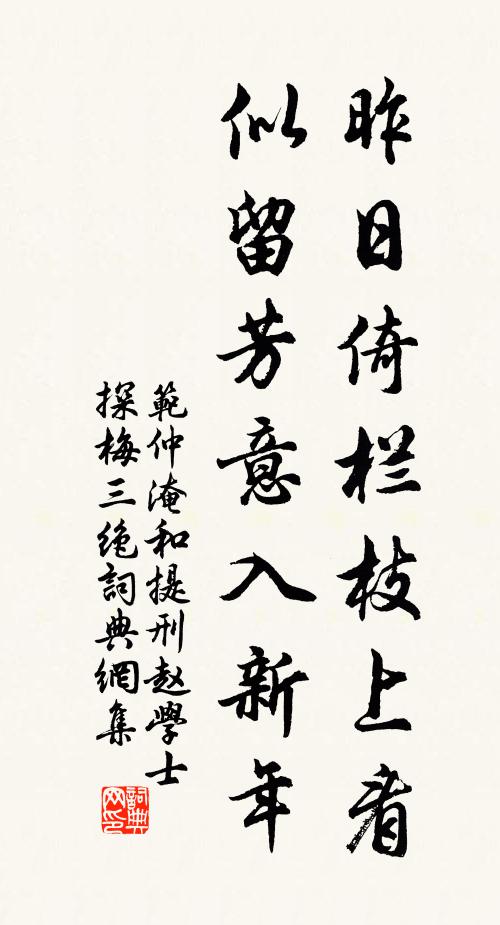 昨日倚栏枝上看
似留芳意入新年
範仲淹和提刑赵學士
探梅三绝詞典網集
詞典网印